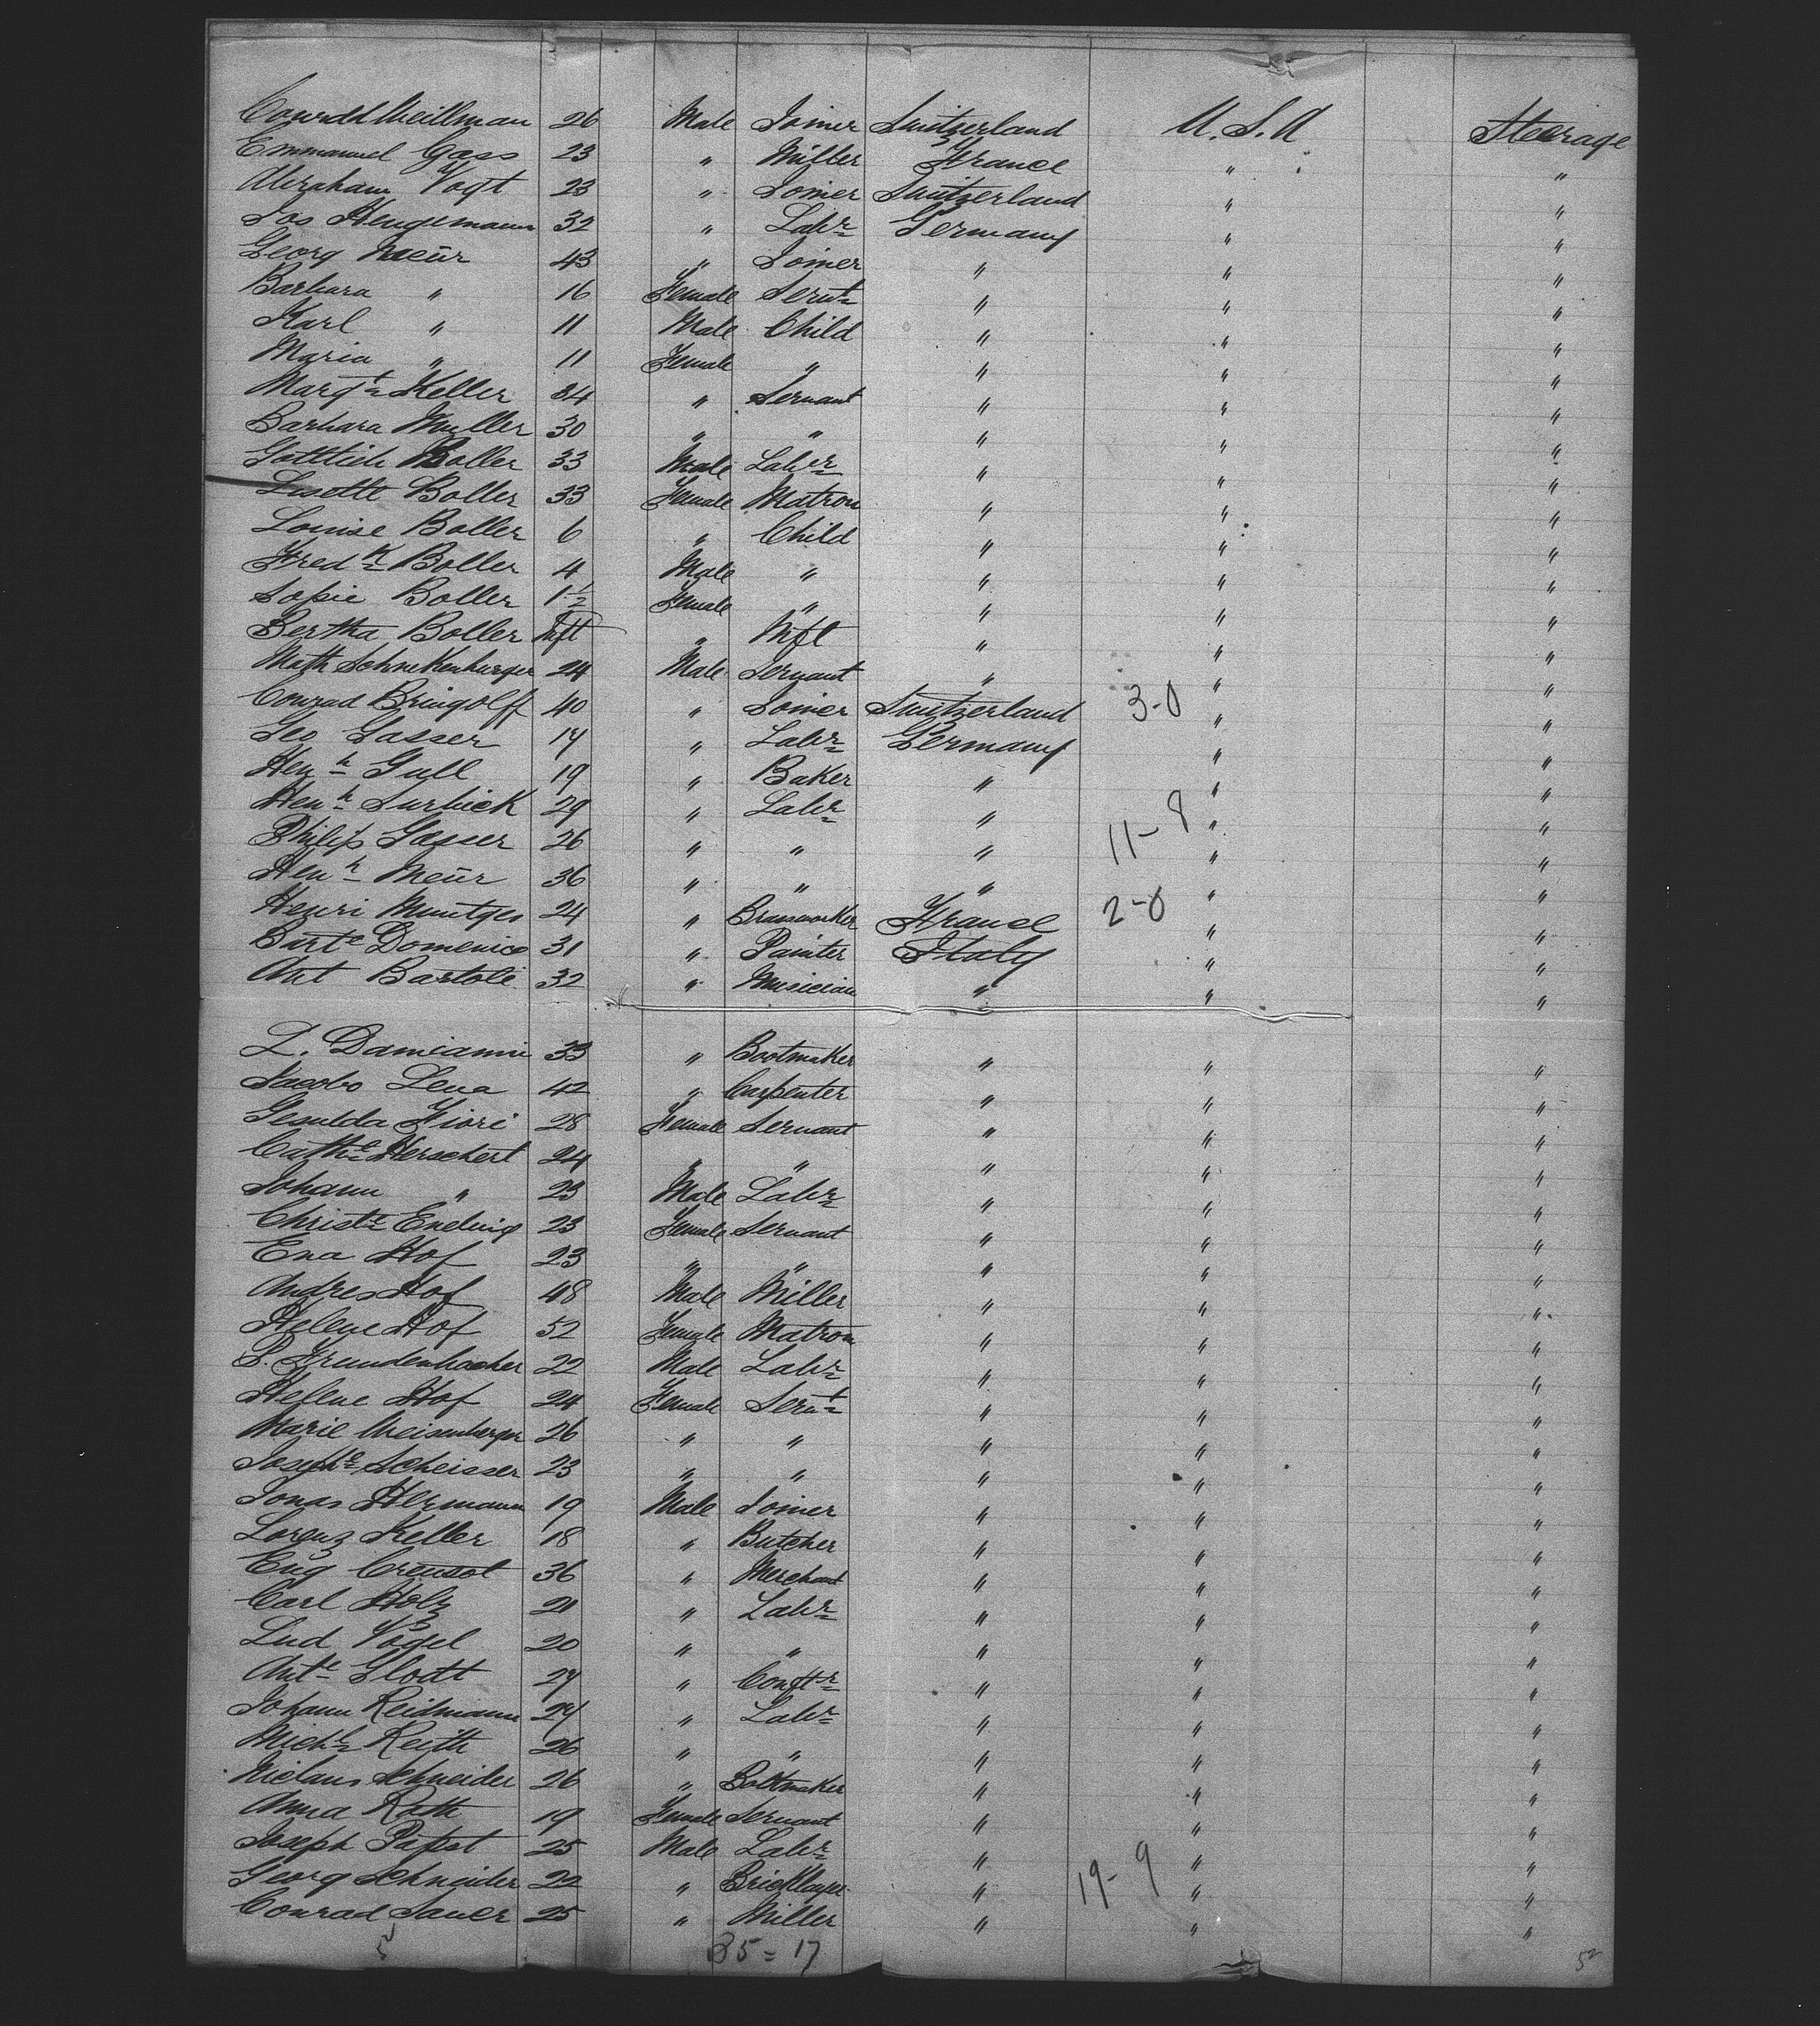 Conrad Meillman 26 Male Joiner Switzerland U.S.A Steerage
Emmanuel Gass 23 " Miller France " "
Abraham Vogt 23 " Joiner Switzerland " "
Jos Hengemann 32 " Labr Germany " "
Georg Meür 43 " Joiner " " "
Barbara " 16 Female Servt " " "
Karl " 11 Male Child " " "
Maria " 11 Female " " " "
Margt Keller 34 " Servant " " "
Barbara Muller 30 " " " " "
Gottlieb Boller 33 Male Labr " " "
Lisette Boller 33 Female Matron " " "
Louise Boller 6 " Child " " "
Fredk Boller 4 Male " " " "
Sopie Boller 1½ Female " " " "
Bertha Boller Inft " Inft " " "
Math Schnekenburger 24 Male Servant " " "
Conrad Bringolff 40 " Joiner Switzerland 3-0 " "
Geo Gasser 17 " Labr Germany " "
Henh Gull 19 " Baker " " "
Henh Surbick 29 " Labr " 11-8 " "
Philip Gasser 26 " " " " "
Henh Meür 36 " " " " "
Henri Muntges 24 " Brassworker France 2-0 " "
Barte Domenico 31 " Painter Italy " "
Ant Bartoli 32 " Musician " " "
L. Damianni 33 " Bootmaker " " "
Jacobo Lena 42 " Carpenter " " "
Gesulda Fiori 28 Female Servant " " "
Cathe Herschert 24 " " " " "
Johann " 23 Male Labr " " "
Christe Enduig 23 Female Servant " " "
Eva Hof 23 " " " " "
Andres Hof 48 Male Miller " " "
Helene Hof 52 Female Matron " " "
P. Frundenbacher 22 Male Labr " " "
Helene Hof 24 Female Servt " " "
Marie Meisenberger 26 " " " " "
Josephe Scheisser 23 " " " " "
Jonas Hermann 19 Male Joiner " " "
Lorenz Keller 18 " Butcher " " "
Eug Creusot 36 " Merchant " " "
Carl Holz 21 " Labr " " "
Lud Vogel 20 " " " " "
Ante Glodt 27 " Conftr " " "
Johann Reidmann 27 " Labr " " "
Michl Keith 26 " " " " "
Niclaus Schneider 26 " Bootmaker " " "
Anna Roth 19 Female Servant " " "
Joseph Papst 25 Male Labr " " "
Georg Schneider 22 " Bricklayer " 19-9 " "
Conrad Sauer 25 " Miller " " "
35=17
52